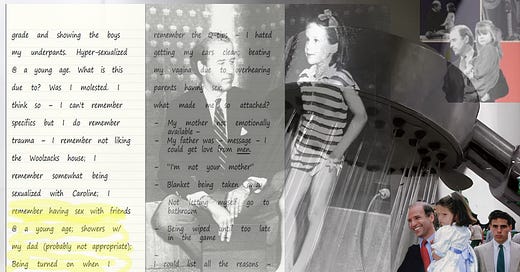 grade and showing the boys
my underpants. Hyper-sexualized
@ a young age. What is this
due to? Was I molested. I
think so - I can't remember
specifics but I do remember
trauma - I remember not liking
the Woolzacks house; I
remember somewhat being
sexualized with Caroline; I
remember having sex with friends
@ a young age; showers w/
my dad (probably not appropriate);
Being turned on when I
remember the Q-tips - I hated
getting my ears clean; beating
my vagina due to overhearing
parents having sex;
what made me so attached?
- My mother not emotionally
available -
- My father was - message - I
could get love from men.
- "I'm not your mother"
- Blanket being taken away
- Not letting myself go to
bathroom
- Being wiped until too late
in the game
I could list all the reasons -